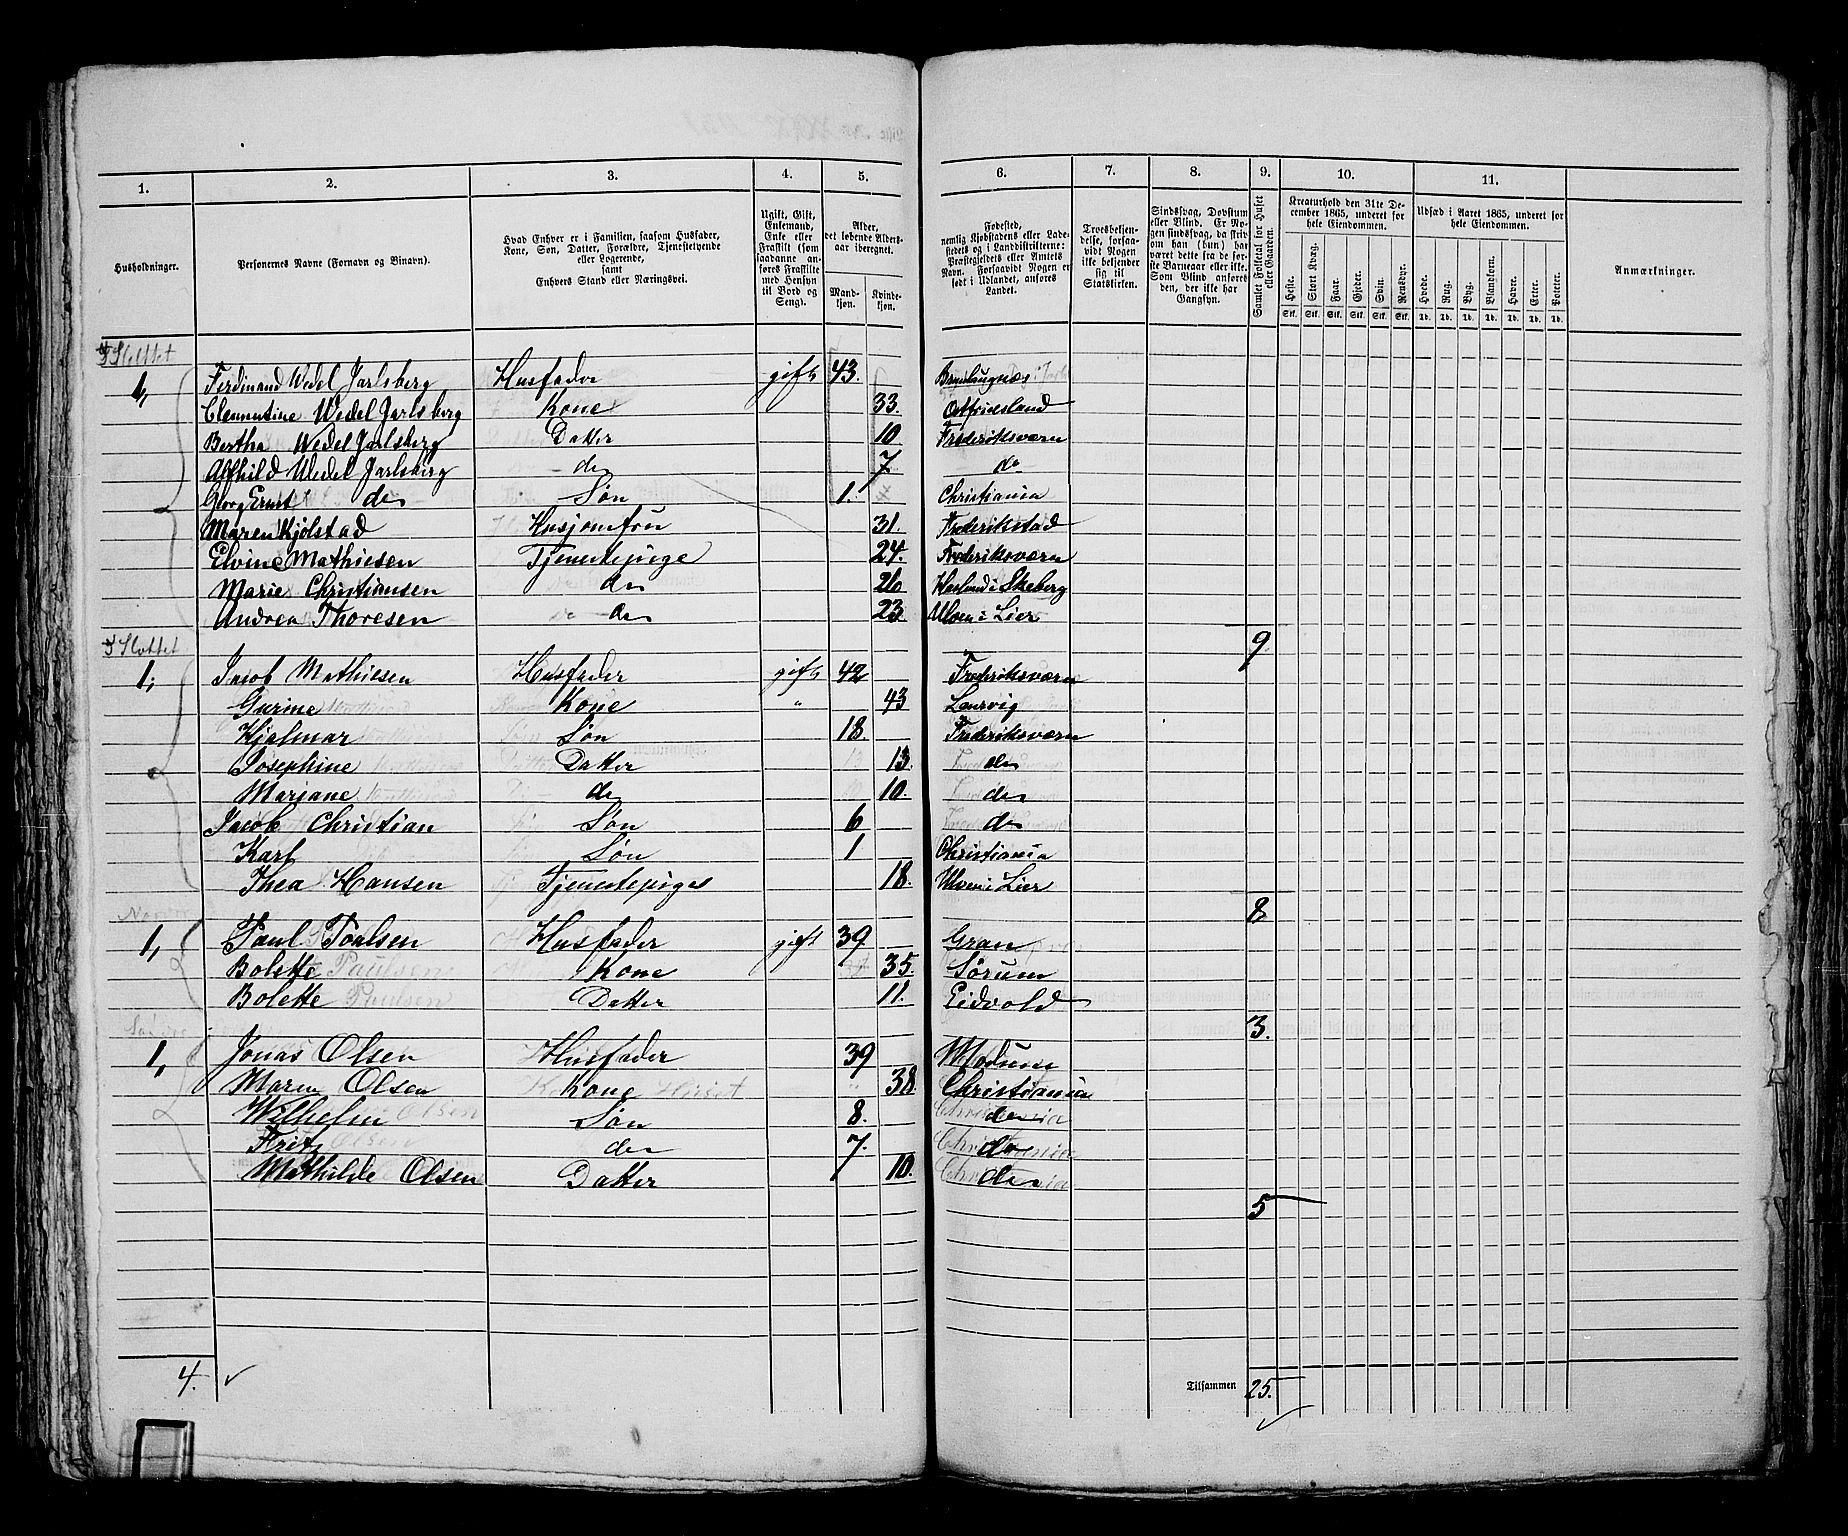 1. 2. 3. 4. 5. 6. 7. 8. 9. 10. 11.
Husholdninger.
Personernes Navne (Fornavn og Binavn).
Hvad Enhver er i Familien, saasom Husfader, Kone, Søn, Datter, Forældre, Tjenstetyende eller Logerende, samt Enhvers Stand eller Næringsvei.
Ugift, Gift, Enkemand, Enke eller Fraskilt (som saadanne anføres Fraskilte med Hensyn til Bord og Seng).
Alder, det løbende Aldersaar iberegnet.
Mandkjøn. Kvindekjøn.
Fødested, nemlig Kjøbstadens eller Ladestedets og i Landdistrikterne: Præstegjeldets eller Amtets Navn. Forsaavidt Nogen er født i Udlandet, anføres Landet.
Troesbekjendelse, forsaavidt Nogen ikke bekjender sig til Statskirken.
Sindssvag, Døvstum eller Blind. Er Nogen sindssvag, da skrives om han (hun) har været dette fra de første Barneaar eller ikke. Som Blind anføres den, der ikke har Gangsyn.
Samlet Folketal for Huset eller Gaarden.
Kreaturhold den 31te December 1865, underet for hele Eiendommen.
Heste. Stort Kvæg. Faar. Gjeder. Svin. Rensdyr.
Udsæd i Aaret 1865, underet for hele Eiendommen.
Hvede. Rug. Byg. Blandkorn. Havre. Erter. Poteter.
Stk. Stk. Stk. Stk. Stk. Stk. Td. Td. Td. Td. Td. Td. Td.
Anmærkninger.
Slottet
1, Ferdinand Wedel Jarlsberg Husfader gift 43.
Clementine Wedel Jarlsberg Kone 33. Ostfriesland
Bertha Wedel Jarlsberg Datter 10 Frederiksværn
Alfhild Wedel Jarlsberg do 7. do
Georg Ernst do Søn 1. Christiania
Maren Kjølstad Husjomfru 31. Frederikstad
Elvine Mathiesen Tjenestepige 24. Frederiksværn
Marie Christiansen do 26 i Skeberg
Andrea Thoresen do 23 i Lier
9.
Slottet
1, Jacob Mathiesen Husfader gift 42 Frederiksværn
Gurine Kone " 43 Laurvig
Hjalmar Søn 18. Frederiksværn
Josephine Datter 13. do
Mariane do 10. do
Jacob Christian Søn 6 do
Karl Søn 1 Christiania
Thea Hansen Tjenestepige 18. i Lier
8
1, Paul Toalsen Husfader gift 39 Gran
Bolette Paulsen Kone 35. Sørum
Bolette Paulsen Datter 11. Eidvold
3.
1, Jonas Olsen Husfader 39 Modum
Maren Olsen Kone 38. Christiania
Wilhelm Olsen Søn 8. do
Fritz Olsen do 7. do
Mathilde Olsen Datter 10. do
5
4. Tilsammen 25.